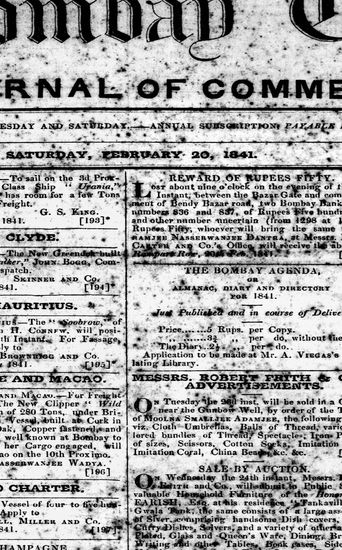 ombay
RNAL OF COMME
ESDAY AND SATURDAY,—ANNUAL SUBSCRIPTION, PAYABLE
SATURDAY, FEBRUARY 20, 1841.
—To sail on the 3d Prox-
Class Ship "Urania,"
has room for a few Tons
Freight.
G. S. KING.
1841. [193]
CLYDE.
—The New Greenock built
JOHN BOGG, Com-
spatch.
SKINNER AND CO.
841. [194]
MAURITIUS.
of
will posi-
th Instant. For Passage,
ly to
BROWNRIGG AND CO.
1841 [195]
E AND MACAO.
AND MACAO.—For Freight
The New Clipper "Wild
of 280 Tons, under Bri-
Vessel, built at Cork in
Oak, Copper fastened, and
well known at Bombay to
her Cargo engaged, will
ao on the 10th Proximo.
NASSERWANJEE WADYA.
[196]
CHARTER.
Vessel of four to five hun
Apply to
MILLER AND CO.
841. [197]
CHAMPAGNE
REWARD OF RUPEES FIFTY.
LOST about nine o'clock on the evening of
Instant, between the Bazar Gate and com
ment of Bendy Bazar road, two Bombay Bank
numbers 836 and 837, of Rupees Five hund
and other number uncertain (from 1298 at
Rupees Fifty, whoever will bring the same
RAMJEE NASSERWANJEE DANTRA, at Messrs.
CARTER AND CO.'s Office, will receive the ab
Rampart Row, 20th Feb. 1841.
THE BOMBAY AGENDA,
OR
ALMANAC, DIARY AND DIRECTORY
FOR 1841.
Just Published and in course of Delive
Price.......5 Rups. per Copy.
per do, without the
The Diary..2½ per do.
Application to be made at Mr. A. VIEGAS's
lating Library.
MESSRS. ROBERT FRITH & C
ADVERTISEMENTS.
ON Tuesday the 23d inst, will be sold in a G
near the Gunbow Well, by order of the
of the following
viz. Cloth Umbrellas, Balls of Thread, vario
lored bundles of Thread, Spectacles, Iron
of sizes, Scissors, Cotton Socks, Imitation
Imitation Coral, China Beads, &c. &c.
SALE BY AUCTION.
ON Wednesday the 24th instant, Messrs.
FRITH and Co., will submit to Public S
valuable Household Furniture of the
Esq. at his residence
Gwala Tank, the same consists of a large ass
of Silver, comprising handsome Dish covers,
Curry Dishes, Salvers, and a variety of other
Plated, Glass and Queen's Ware, Dining, Br
Writing and other Tables, Book cases, Side